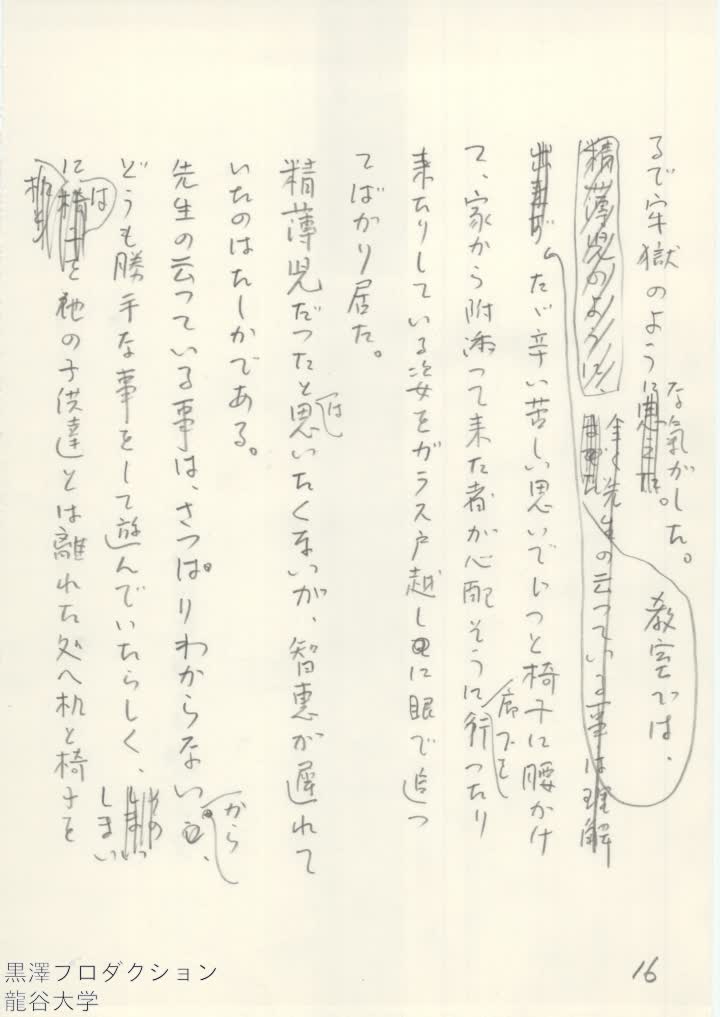 るで牢獄のようにな氣がした。
教室では、
精薄児のように、
全く先生の云つている事は理解
出来ず、たゞ辛い苦しい思いでじつと椅子に腰かけ
て、家から附添つて来た者が心配そうに廊下を行つたり
来たりしている姿をガラス戸越しに眼で追つ
てばかり居た。
精薄児だつたとは思いたくないが、智恵が遅れて
いたのはたしかである。
先生の云つている事は、さつぱりわからないから、
どうも勝手な事をして遊んでいたらしく、
しまいに
は他の子供達とは離れた処へ机と椅子を
16
黒澤プロダクション
龍谷大学